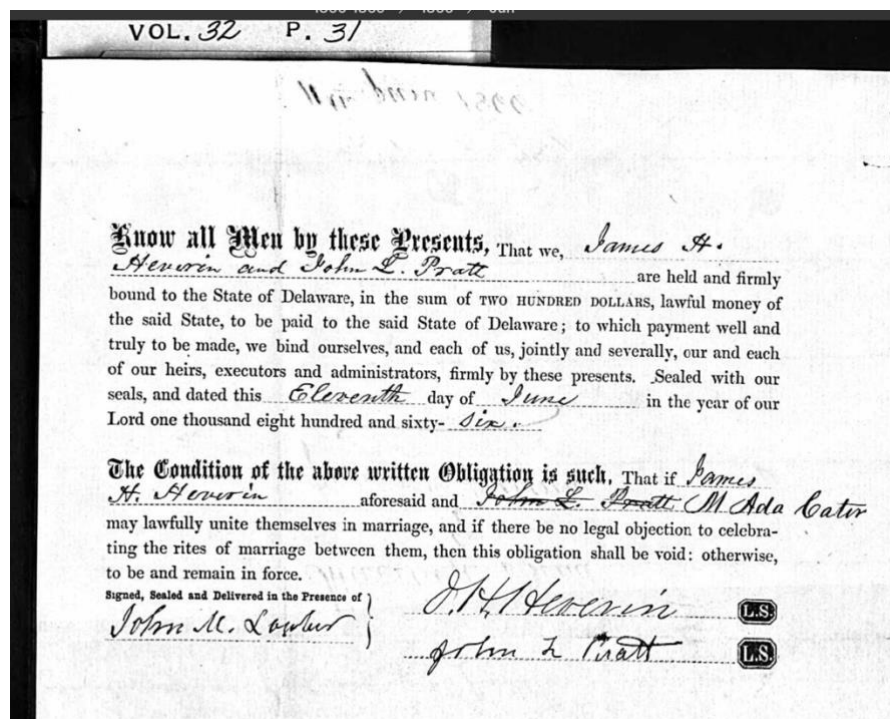 VOL. 32 P. 31
Know all Men by these Presents, That we, James H.
Heverin and John L. Pratt are held and firmly
bound to the State of Delaware, in the sum of TWO HUNDRED DOLLARS, lawful money of
the said State, to be paid to the said State of Delaware; to which payment well and
truly to be made, we bind ourselves, and each of us, jointly and severally, our and each
of our heirs, executors and administrators, firmly by these presents. Sealed with our
seals, and dated this Eleventh day of June in the year of our
Lord one thousand eight hundred and sixty- six.
The Condition of the above written Obligation is such, That if James
H. Heverin aforesaid and John L. Pratt M Ada Cater
may lawfully unite themselves in marriage, and if there be no legal objection to celebra-
ting the rites of marriage between them, then this obligation shall be void: otherwise,
to be and remain in force.
Signed, Sealed and Delivered in the Presence of
J H Heverin L.S
John M. L.S.
John L Pratt